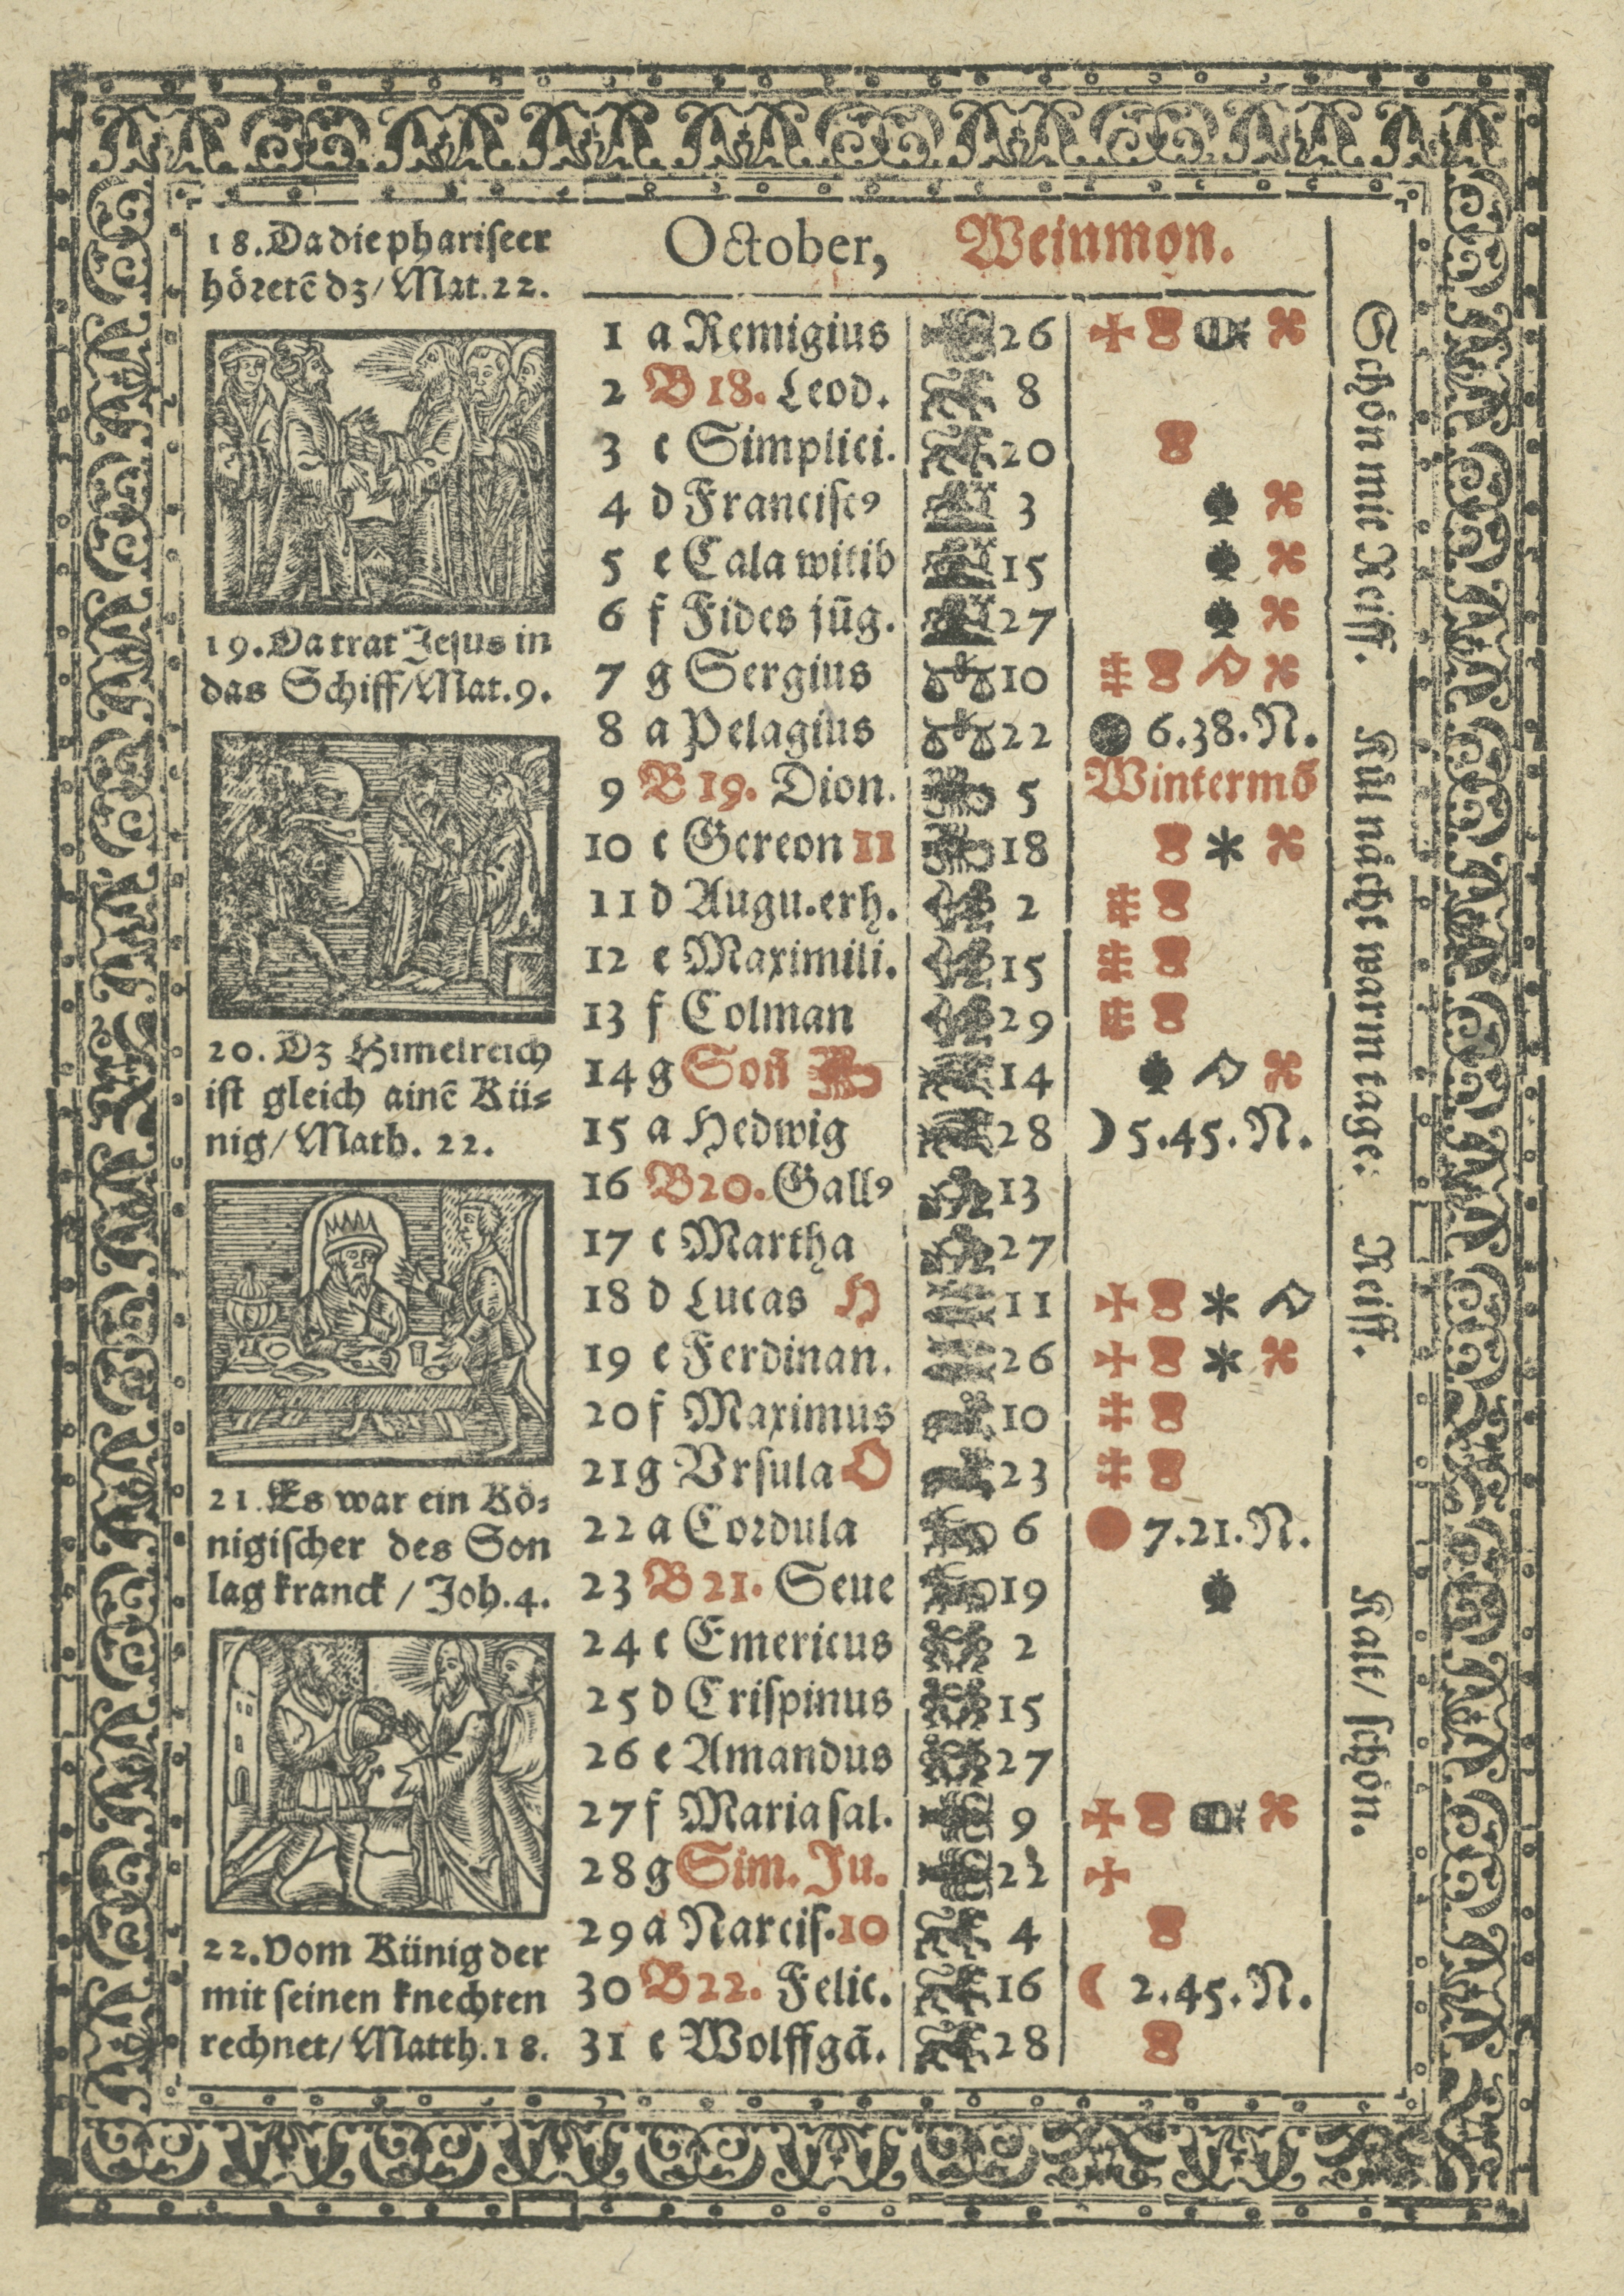 18. Da die phariseer
höretē dz/ Mat. 22.
19. Da trat Jesus in
das Schiff/Mat. 9.
20. Dz Himelreich
ist gleich ainē Kü-
nig/ Math. 22.
21. Es war ein Kö-
nigischer des Son
lag kranck / Joh. 4.
22. Vom Künig der
mit seinen knechten
rechnet/ Matth. 18.
October, Weinmon.
1 a Remigius 26
2 B 18. Leod. 8
3 c Simplici. 20
4 d Franciscꝰ 3
5 e Cala witib 15
6 f Fides jūg. 27
7 g Sergius 10
8 a Pelagius 22 6.38.N.
9 B 19. Dion. 5 Wintermō
10 c Gereon 11 18
11 d Augu.erh. 2
12 e Maximili. 15
13 f Colman 29
14 g Soñ 14
15 a Hedwig 28 5.45.N.
16 B 20. Gallꝰ 13
17 c Martha 27
18 d Lucas H 11
19 e Ferdinan. 26
20 f Maximus 10
21 g Vrsula O 23
22 a Cordula 6 7.21.N.
23 B 21. Seue 19
24 c Emericus 2
25 d Crispinus 15
26 e Amandus 27
27 f Maria sal. 9
28 g Sim. Ju. 22
29 a Narcis. 10 4
30 B 22. Felic. 16 2.45.N.
31 c Wolffgā. 28
Schön mit Reiff. Kül nächt warm tage: Reiff. Kalt/ schön.